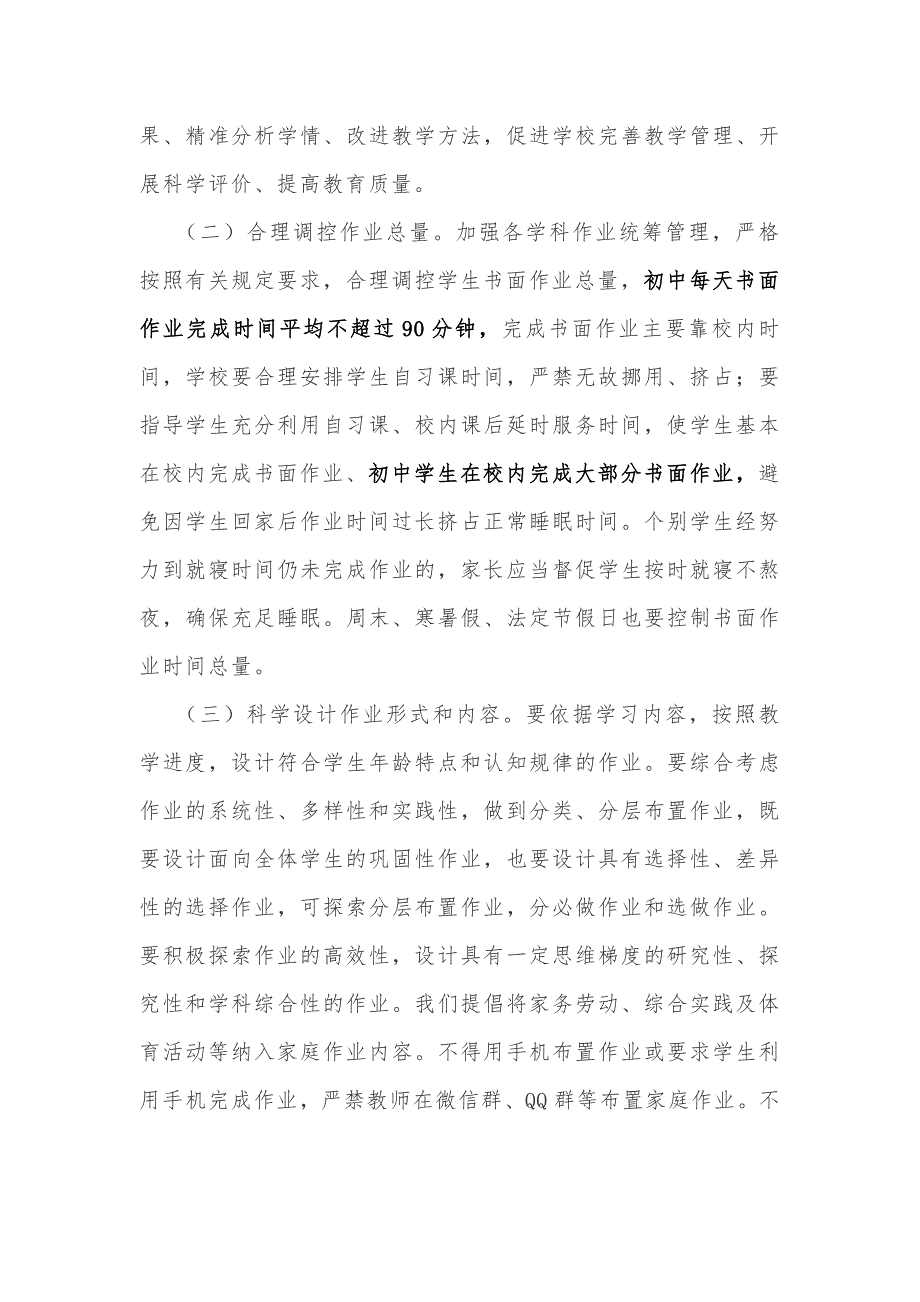 果、精准分析学情、改进教学方法，促进学校完善教学管理、开
展科学评价、提高教育质量。
（二）合理调控作业总量。加强各学科作业统筹管理，严格
按照有关规定要求，合理调控学生书面作业总量，初中每天书面
作业完成时间平均不超过 90 分钟，完成书面作业主要靠校内时
间，学校要合理安排学生自习课时间，严禁无故挪用、挤占；要
指导学生充分利用自习课、校内课后延时服务时间，使学生基本
在校内完成书面作业、初中学生在校内完成大部分书面作业，避
免因学生回家后作业时间过长挤占正常睡眠时间。个别学生经努
力到就寝时间仍未完成作业的，家长应当督促学生按时就寝不熬
夜，确保充足睡眠。周末、寒暑假、法定节假日也要控制书面作
业时间总量。
（三）科学设计作业形式和内容。要依据学习内容，按照教
学进度，设计符合学生年龄特点和认知规律的作业。要综合考虑
作业的系统性、多样性和实践性，做到分类、分层布置作业，既
要设计面向全体学生的巩固性作业，也要设计具有选择性、差异
性的选择作业，可探索分层布置作业，分必做作业和选做作业。
要积极探索作业的高效性，设计具有一定思维梯度的研究性、探
究性和学科综合性的作业。我们提倡将家务劳动、综合实践及体
育活动等纳入家庭作业内容。不得用手机布置作业或要求学生利
用手机完成作业，严禁教师在微信群、QQ 群等布置家庭作业。不